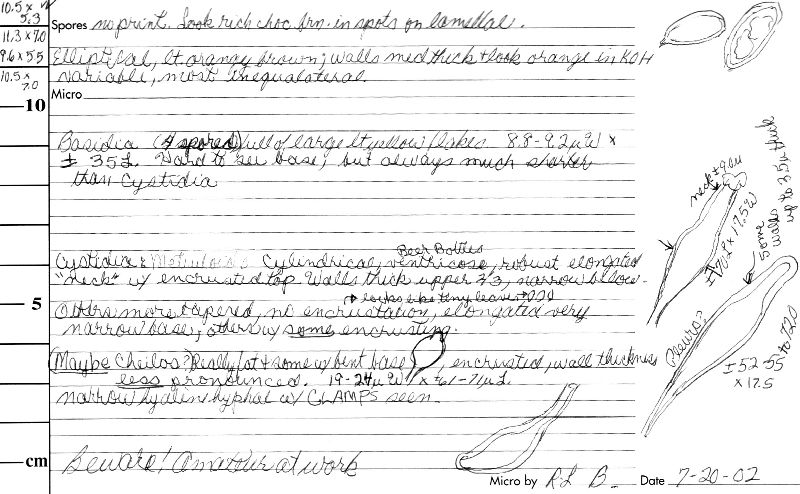 10.5 x
5.3
11.3 x 7.0
9.6 x 5.5
10.5 x
7.0
Spores no print. Look rich choc brn. in spots on lamellae.
Elliptical, lt orangy brown; walls med thick & look orange in KOH
variable, most inequalateral.
Micro
10
Basidia (4 spored) full of large lt yellow flakes 8.8-9.2µ W x
± 35 L. Hard to see base; but always much shorter
than Cystidia
Beer Bottles
Cystidia: Metuloids Cylindrical, ventricose, robust elongated
"neck" w/ encrusted top Walls thick upper 2/3, narrow below.
looks like tiny leaves
5
Others more tapered, no encrustation, elongated very
narrow base; others w/ some encrusting.
(Maybe Cheilos? Really fat & some w/ bent base), encrusted, wall thickness
less pronounced. 19-24µ W x ±61-71µ L.
narrow hyalin hyphae w/ CLAMPS seen.
cm
Beware! Amateur at work
Micro by R L B. Date 7-20-02
neck ±9.0µ
±70 L x 17.5 W
Some walls up to 3.5µ thick
Pleuro?
±52.55 to 72.0
x 17.5